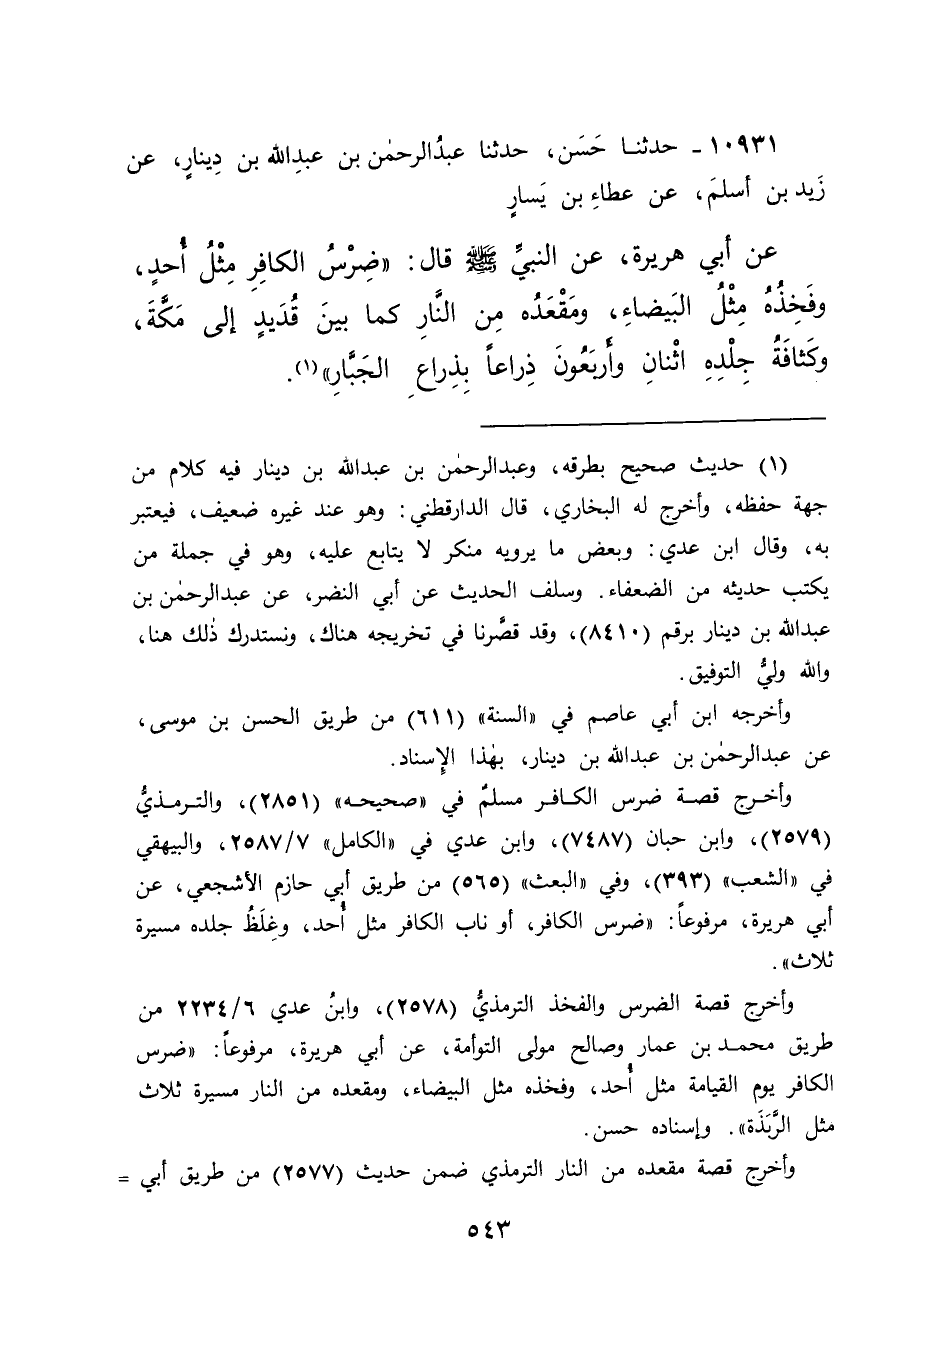 ١٠٩٣١ - حدثنا حَسَن، حدثنا عبدُالرحمٰن بن عبدِالله بن دِينارٍ، عن
زَيد بن أسلمَ، عن عطاءِ بن يَسارٍ
عن أبي هريرة، عن النبيِّ ﷺ قال: «ضِرْسُ الكافِرِ مِثْلُ أُحدٍ،
وفَخِذُهُ مِثْلُ البَيضاءِ، ومَقْعَدُه مِن النَّارِ كما بينَ قُدَيدٍ إلى مَكَّةَ،
وكَثافَةُ جِلْدِهِ اثْنانِ وأَربَعُونَ ذِراعاً بِذِراعِ الجَبَّارِ»(١).
(١) حديث صحيح بطرقه، وعبدالرحمٰن بن عبدالله بن دينار فيه كلام من
جهة حفظه، وأخرج له البخاري، قال الدارقطني: وهو عند غيره ضعيف، فيعتبر
به، وقال ابن عدي: وبعض ما يرويه منكر لا يتابع عليه، وهو في جملة من
يكتب حديثه من الضعفاء. وسلف الحديث عن أبي النضر، عن عبدالرحمٰن بن
عبدالله بن دينار برقم (٨٤١٠)، وقد قصَّرنا في تخريجه هناك، ونستدرك ذٰلك هنا،
والله وليُّ التوفيق.
وأخرجه ابن أبي عاصم في «السنة» (٦١١) من طريق الحسن بن موسى،
عن عبدالرحمٰن بن عبدالله بن دينار، بهٰذا الإِسناد.
وأخرج قصة ضرس الكافر مسلمٌ في «صحيحه» (٢٨٥١)، والترمذيُّ
(٢٥٧٩)، وابن حبان (٧٤٨٧)، وابن عدي في «الكامل» ٢٥٨٧/٧، والبيهقي
في «الشعب» (٣٩٣)، وفي «البعث» (٥٦٥) من طريق أبي حازم الأشجعي، عن
أبي هريرة، مرفوعاً: «ضرس الكافر، أو ناب الكافر مثل أُحد، وغِلَظُ جلده مسيرة
ثلاث».
وأخرج قصة الضرس والفخذ الترمذيُّ (٢٥٧٨)، وابنُ عدي ٢٢٣٤/٦ من
طريق محمد بن عمار وصالح مولى التوأمة، عن أبي هريرة، مرفوعاً: «ضرس
الكافر يوم القيامة مثل أُحد، وفخذه مثل البيضاء، ومقعده من النار مسيرة ثلاث
مثل الرَّبَذَة». وإسناده حسن.
وأخرج قصة مقعده من النار الترمذي ضمن حديث (٢٥٧٧) من طريق أبي =
٥٤٣